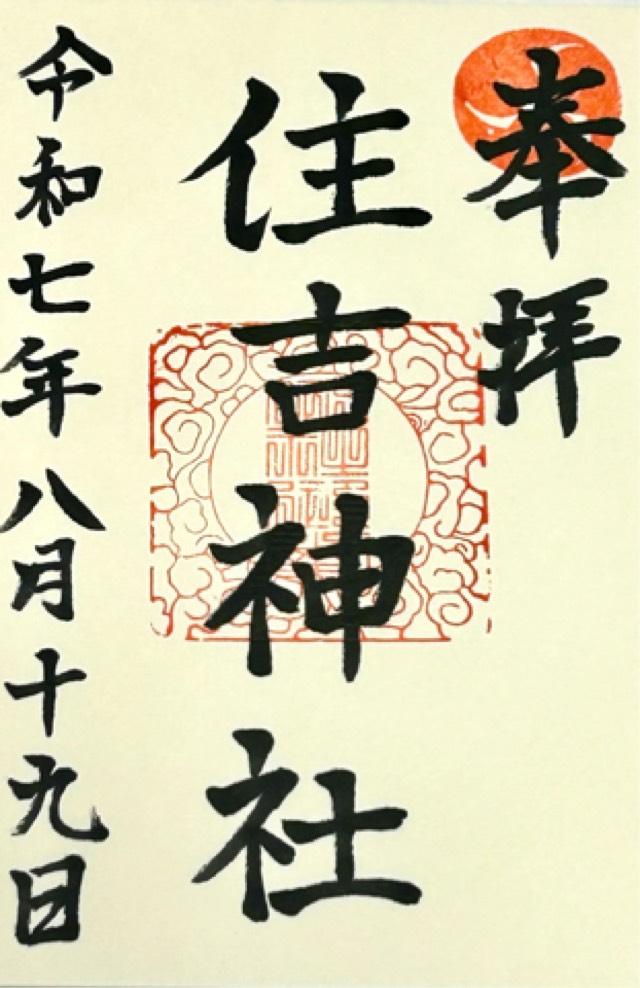 奉拝
住吉神社
令和七年八月十九日